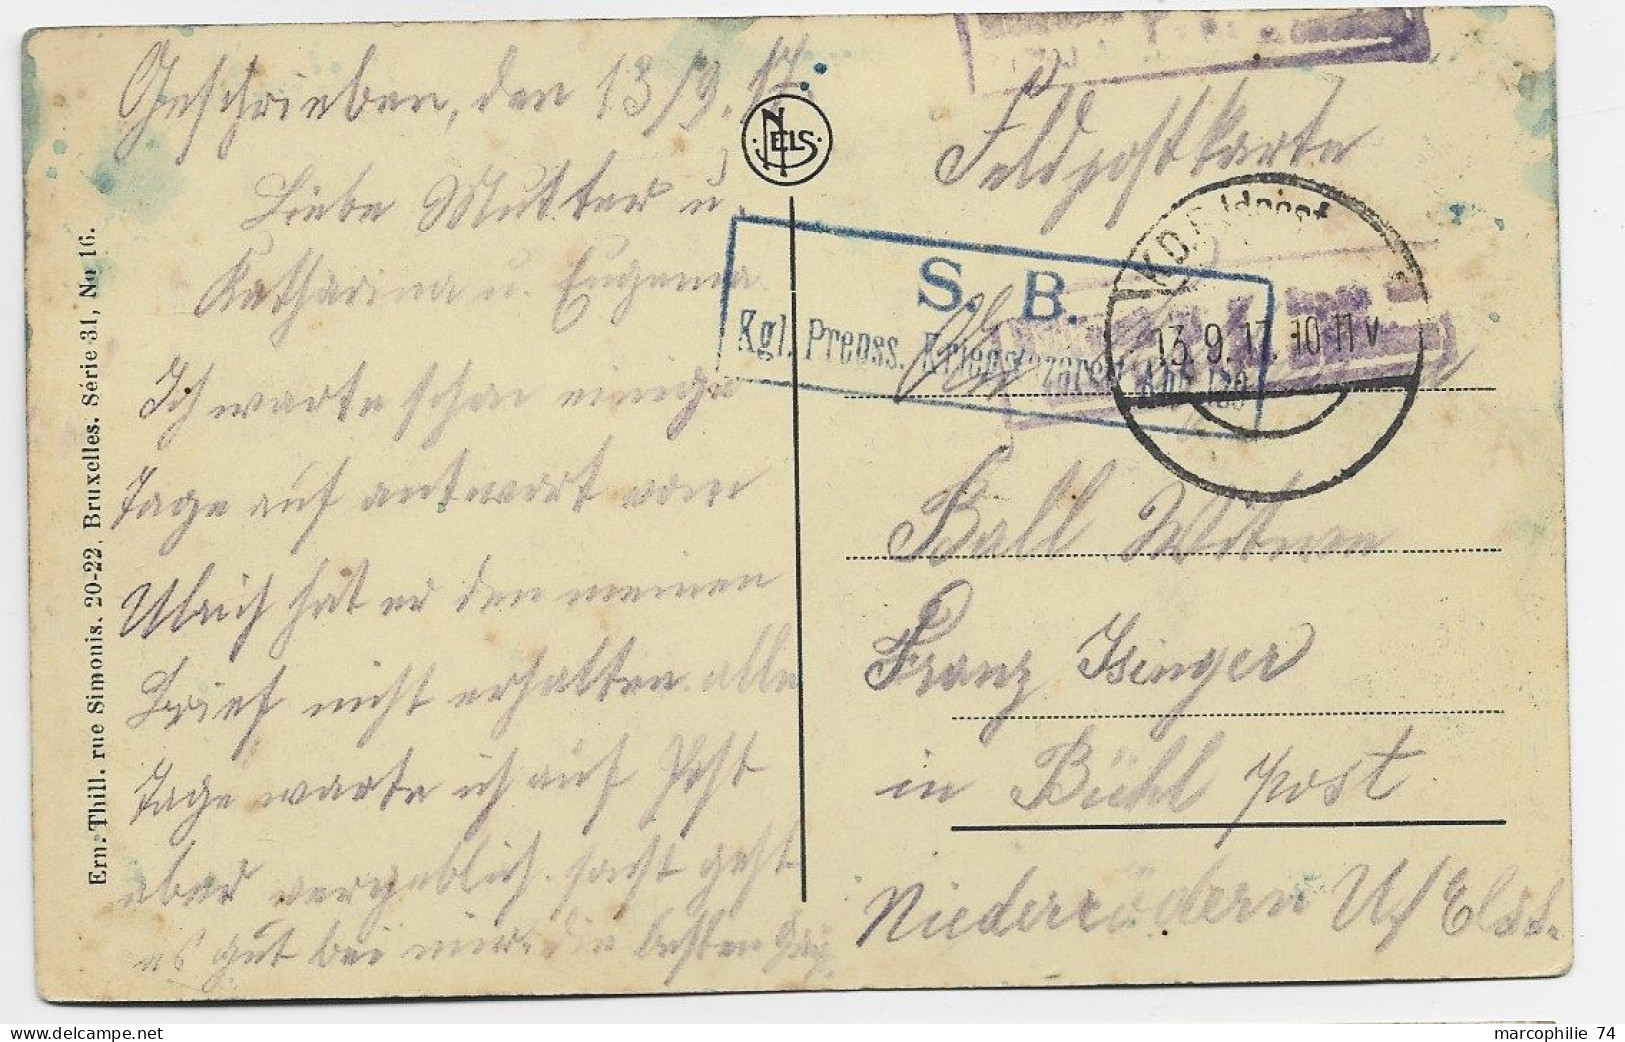 Geschrieben, den 13/9.17.
Liebe Mutter u.
Katharina u. Eugenia
Ich warte schon einige
Tage auf antwort vom
Ulrich hat er den meinen
Brief nicht erhalten. alle
Tage warte ich auf Post
aber vergeblich. sonst geht
es gut bei mir. die besten
Ern. Thill. rue Simonis. 20-22. Bruxelles. Série 31, No 16.
NELS
Feldpostkarte
S. B.
Kgl. Preuss. Kriegslazarett Abt.
K.D. Feldpost
13.9.17. 10-11 V
An
Ball Witwe
Franz Isinger
in Bühl post
Niederrödern U/Elst.
marcophilie 74